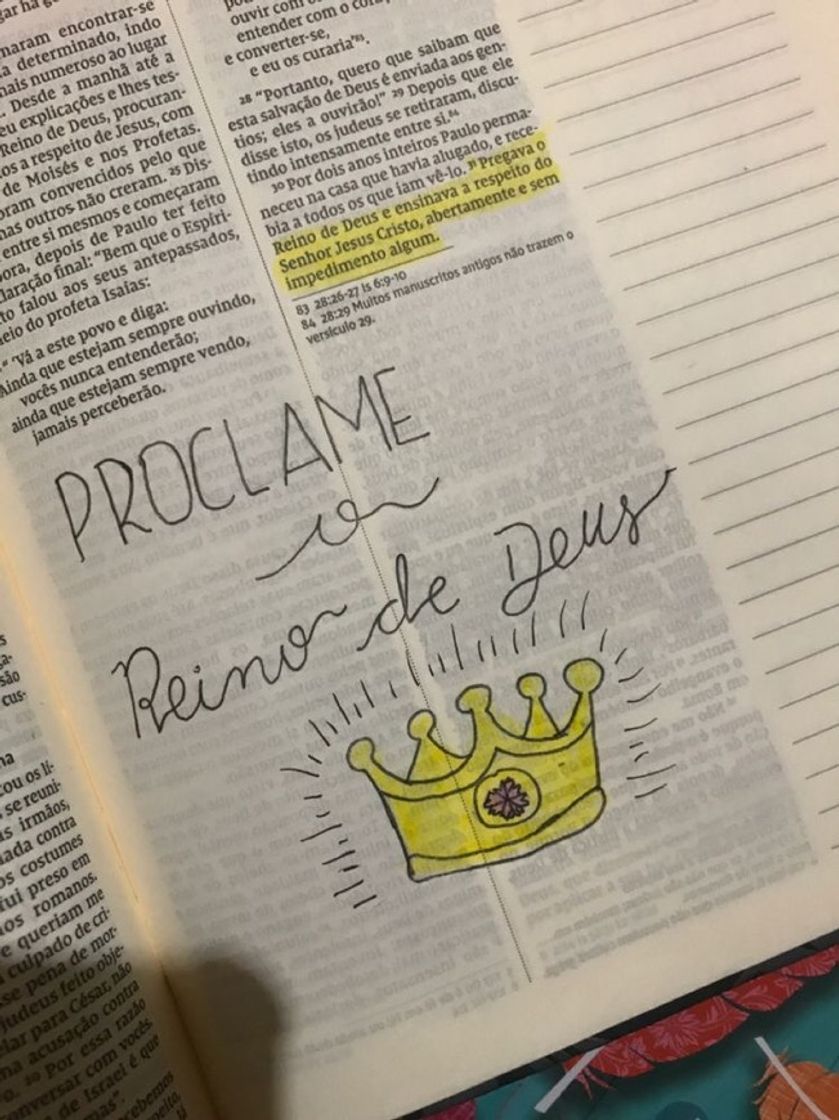 naram encontrar-se
a determinado, indo
nais numeroso ao lugar
. Desde a manhã até a
eu explicações e lhes tes-
Reino de Deus, procuran-
os a respeito de Jesus, com
de Moisés e nos Profetas.
oram convencidos pelo que
nas outros não creram. 25 Dis-
entre si mesmos e começaram
bora, depois de Paulo ter feito
laração final: “Bem que o Espíri-
to falou aos seus antepassados,
eio do profeta Isaías:
“ ‘Vá a este povo e diga:
Ainda que estejam sempre ouvindo,
vocês nunca entenderão;
ainda que estejam sempre vendo,
jamais perceberão.
ouvir com os
entender com o
e converter-se,
e eu os curaria’83.
28 “Portanto, quero que saibam que
esta salvação de Deus é enviada aos gen-
tios; eles a ouvirão!” 29 Depois que ele
disse isto, os judeus se retiraram, discu-
tindo intensamente entre si.84
30 Por dois anos inteiros Paulo perma-
neceu na casa que havia alugado, e rece-
bia a todos os que iam vê-lo. 31 Pregava o
Reino de Deus e ensinava a respeito do
Senhor Jesus Cristo, abertamente e sem
impedimento algum.
83 28:26-27 Is 6:9-10
84 28:29 Muitos manuscritos antigos não trazem o
versículo 29.
PROCLAME
o
Reino de Deus
são
cus-
ou os lí-
se reuni-
s irmãos,
ada contra
os costumes
fui preso em
os romanos.
e queriam me
culpado de cri-
se pena de mor-
judeus feito obje-
lar para César, não
ma acusação contra
20 Por essa razão
conversar com vocês.
de Israel é que
mas”.